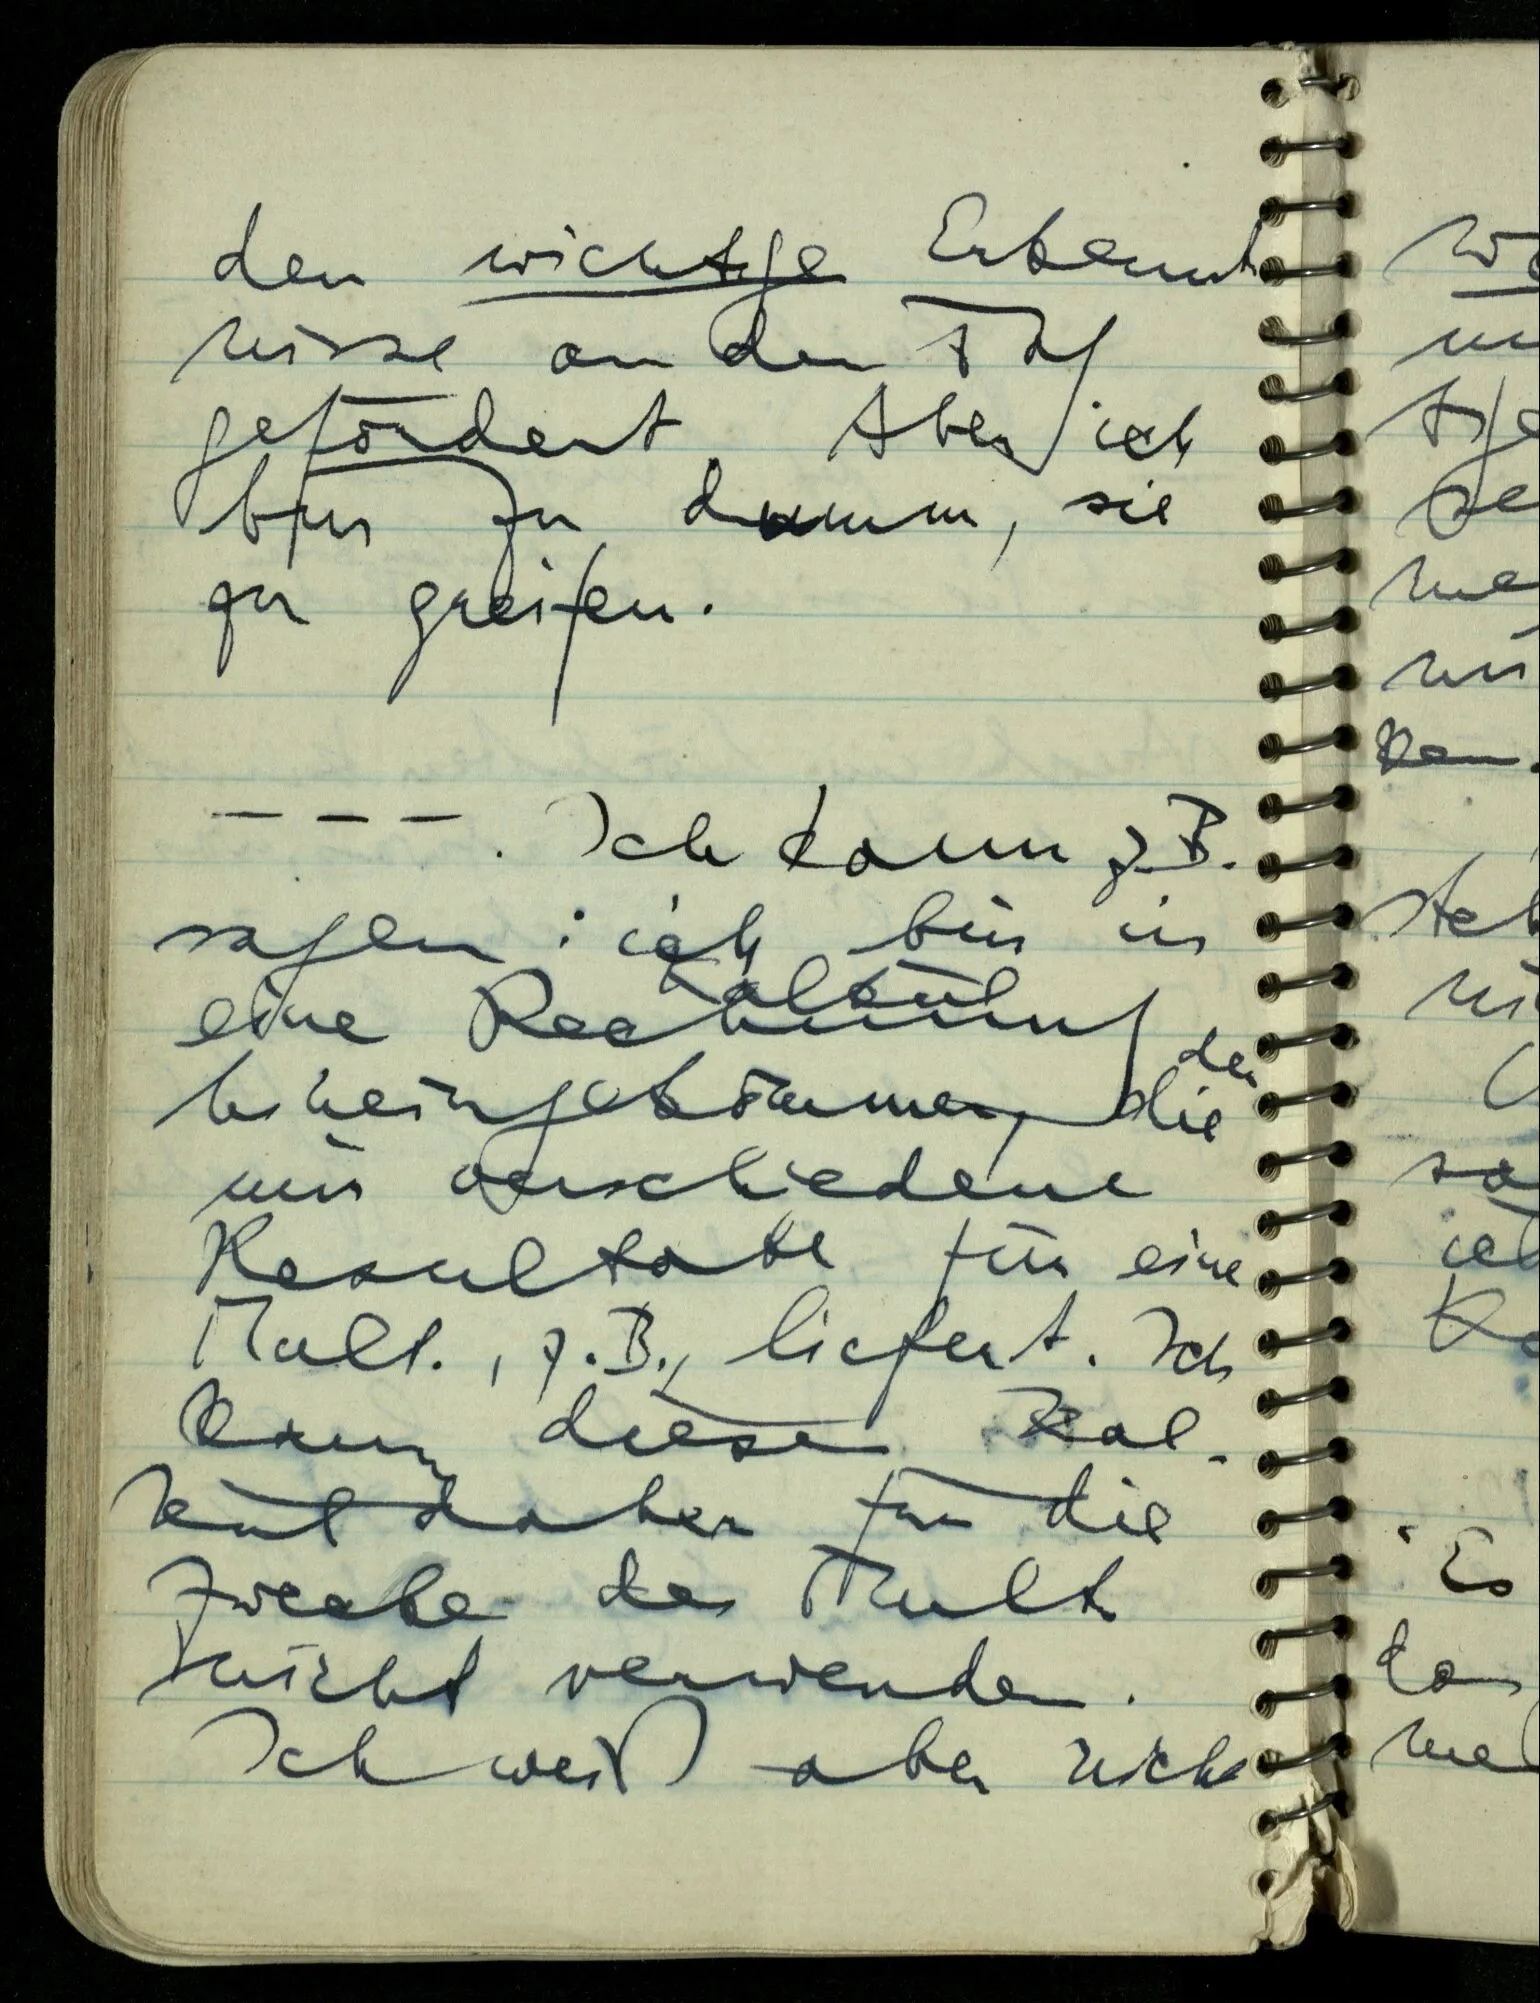 den wichtige Erkennt
nisse an den Tag
gefördert. Aber ich
bin zu dumm, sie
zu greifen.
– – – . Ich kann z.B.
sagen: ich bin in
Kalkül
eine Rechnung
der
hineingekommen, die
mir verschiedene
Resultate für eine
Mult., z.B., liefert. Ich
kann diesen Kal-
kül daher für die
Zwecke der Mult.
nicht verwenden.
Ich weiß aber nicht